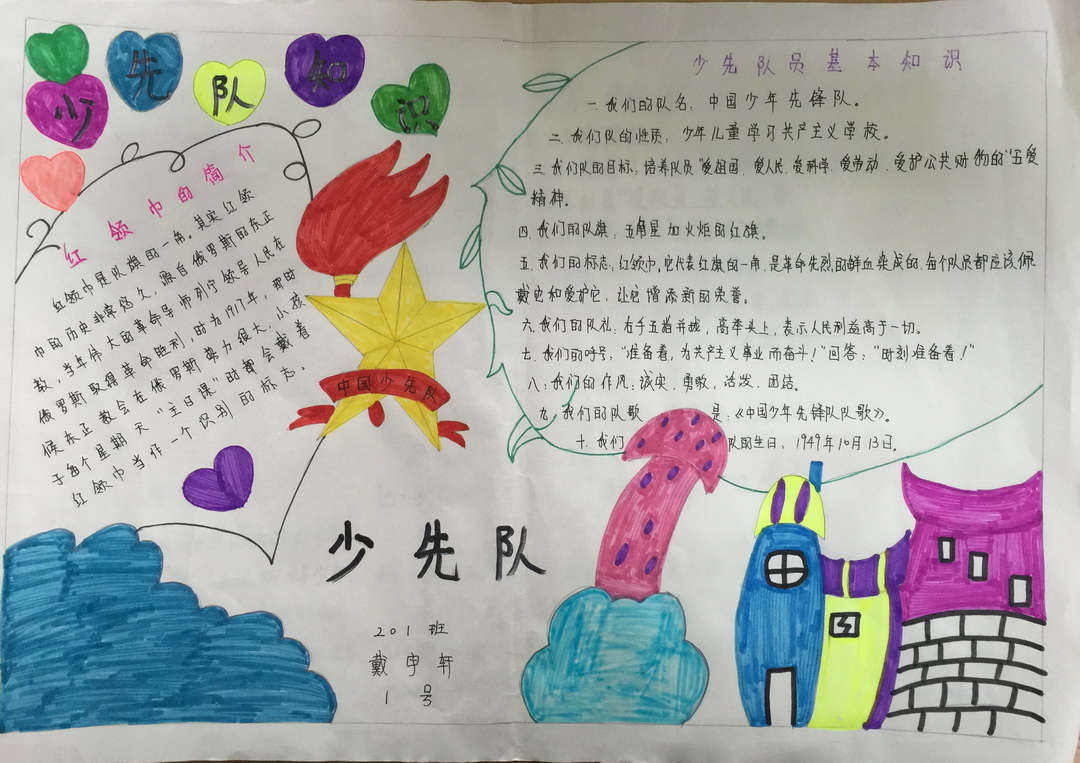 少先队知识
红领巾的简介
红领巾是队旗的一角。其实红领
巾的历史非常悠久，源自俄罗斯的东正
教，当年伟大的革命导师列宁领导人民在
俄罗斯取得革命胜利，时为1917年，那时
候东正教会在俄罗斯势力很大，小孩
子每个星期天“主日课”时都会戴着
红领巾当作一个识别的标志。
中国少先队
少先队
201班
戴宇轩
1号
少先队员基本知识
一.我们的队名：中国少年先锋队。
二.我们队的性质：少年儿童学习共产主义学校。
三.我们队的目标：培养队员“爱祖国、爱人民、爱科学、爱劳动、爱护公共财物的“五爱
精神。
四.我们的队旗：五角星加火炬的红旗。
五.我们的标志：红领巾，它代表红旗的一角，是革命先烈的鲜血染成的，每个队员都应该佩
戴它和爱护它，让它增添新的荣誉。
六.我们的队礼：右手五指并拢，高举头上，表示人民利益高于一切。
七.我们的呼号：“准备着，为共产主义事业而奋斗！”回答：“时刻准备着！”
八.我们的作风：诚实、勇敢、活发、团结。
九.我们的队歌是：《中国少年先锋队队歌》。
十.我们队的生日：1949年10月13日。